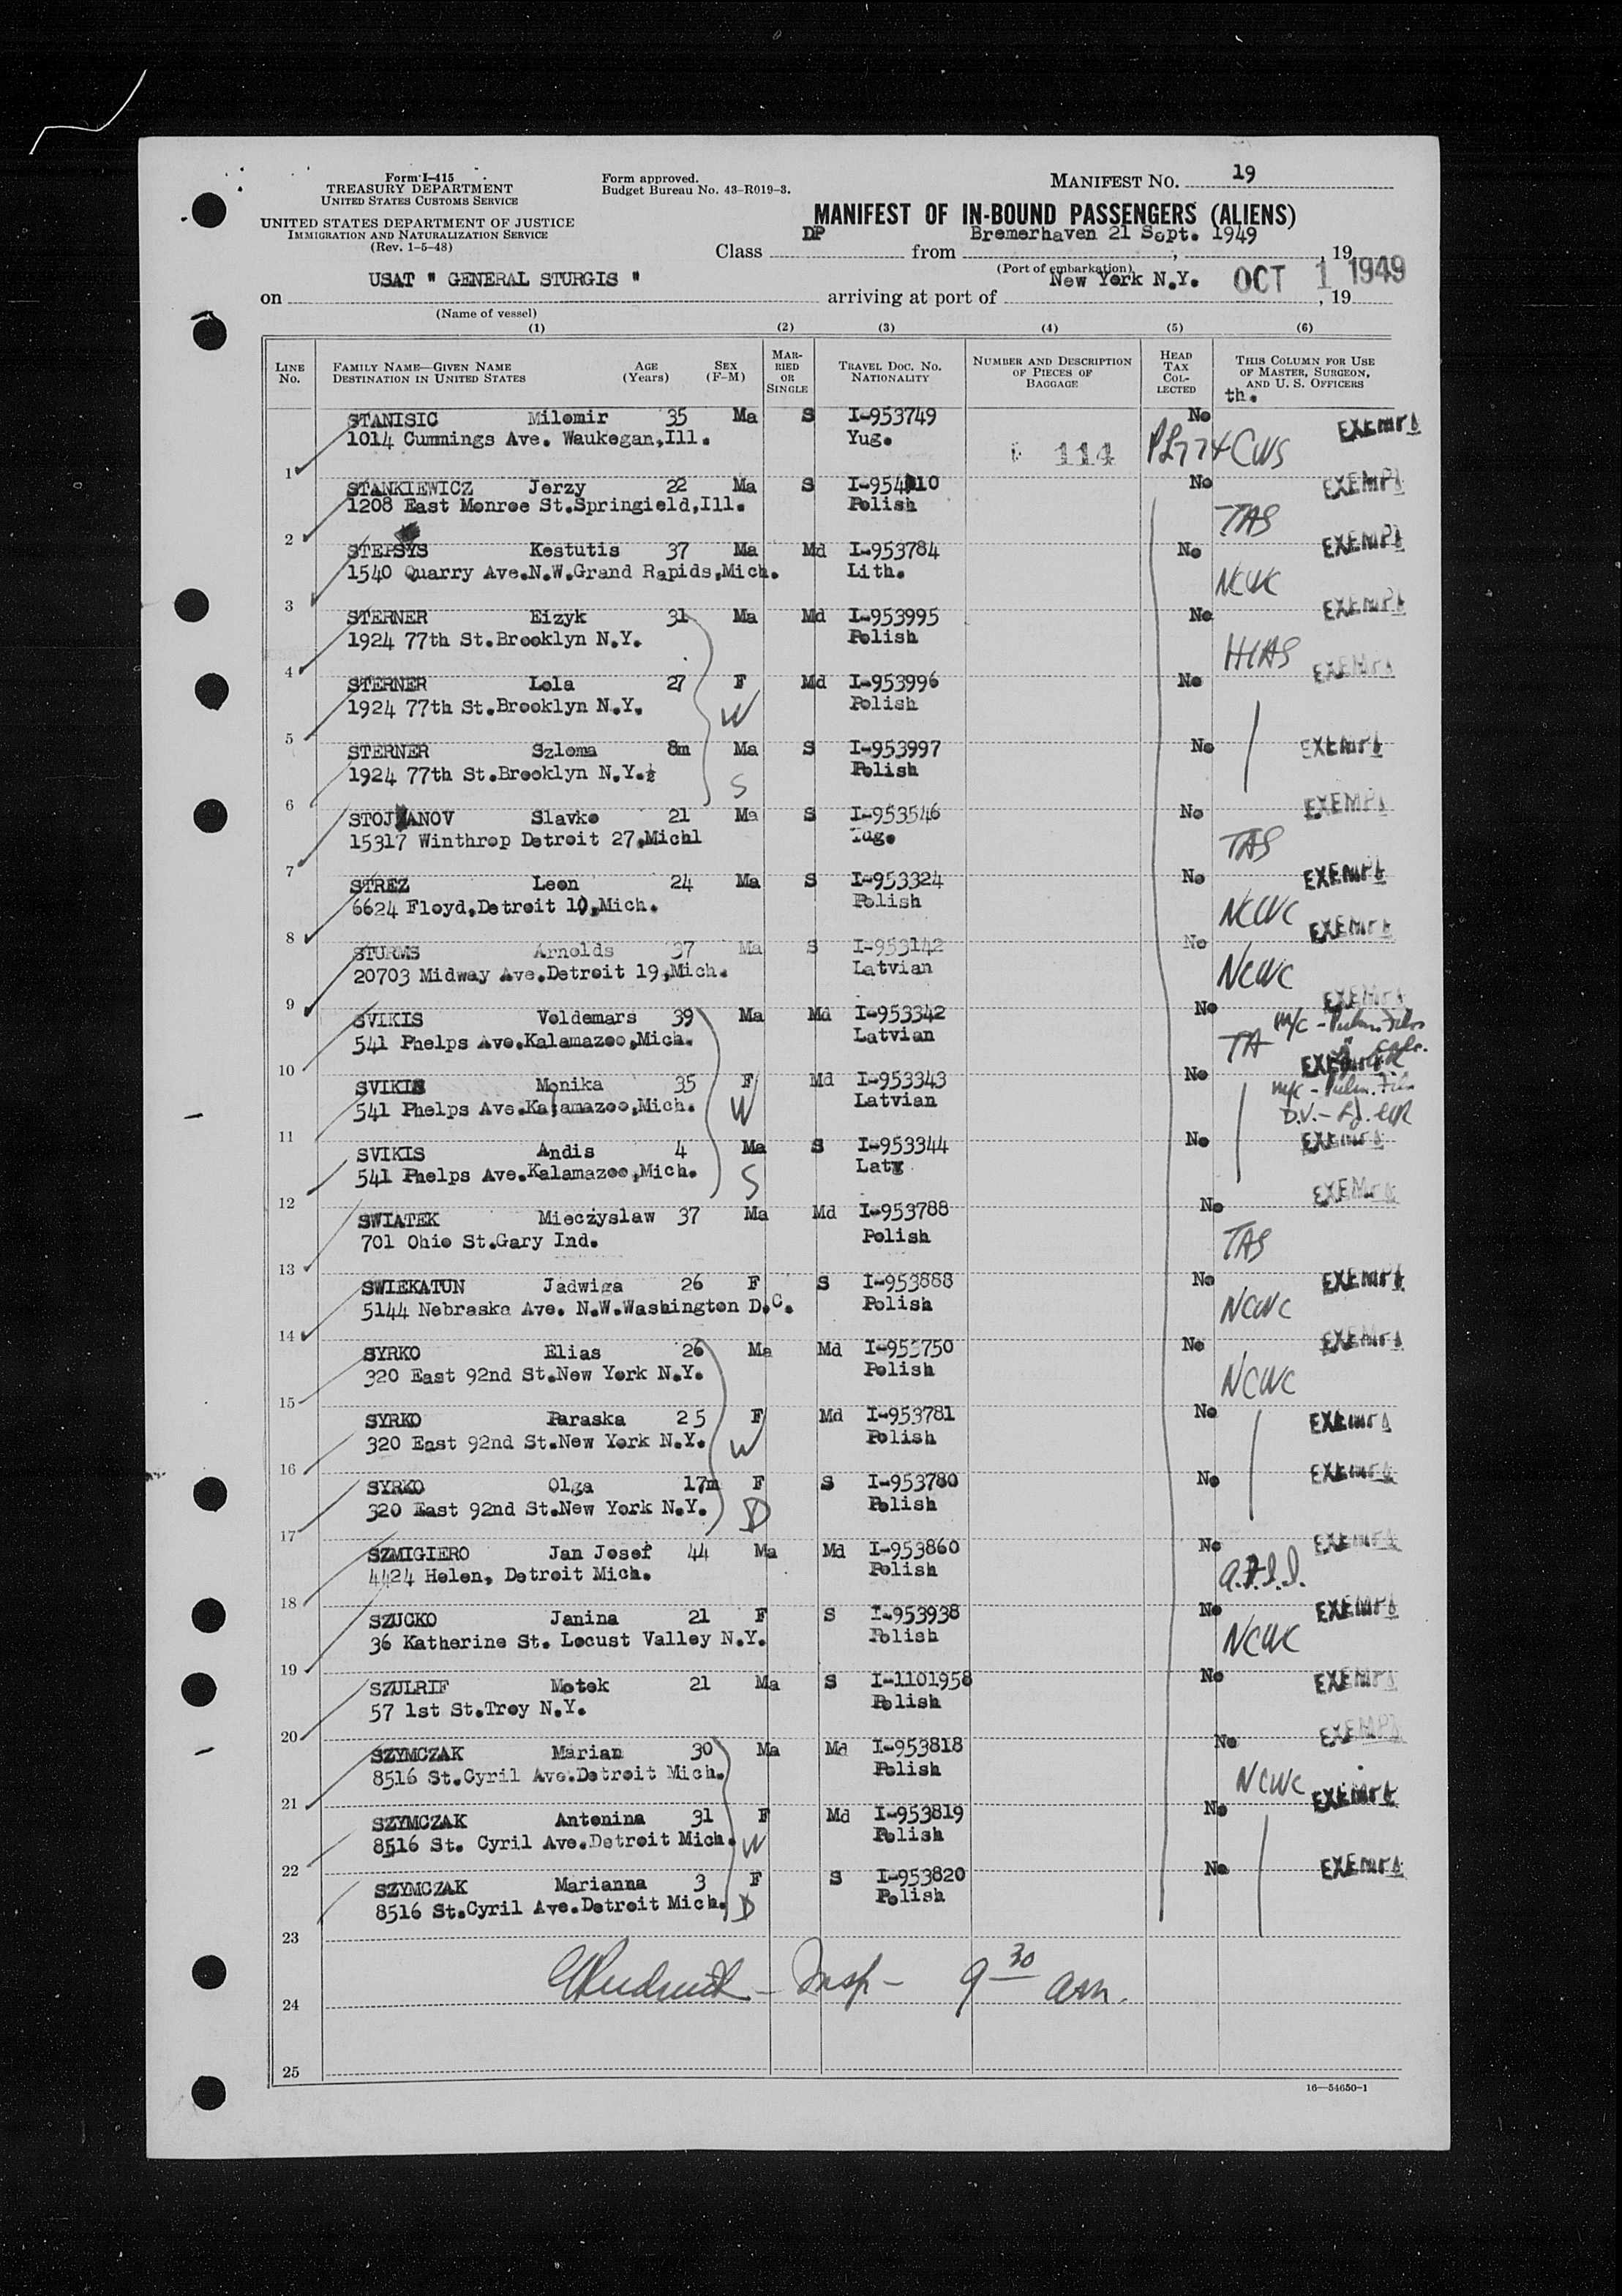 Form I-415
TREASURY DEPARTMENT
UNITED STATES CUSTOMS SERVICE
UNITED STATES DEPARTMENT OF JUSTICE
IMMIGRATION AND NATURALIZATION SERVICE
(Rev. 1-5-48)
Form approved.
Budget Bureau No. 43-R019-3.
MANIFEST NO. 19
MANIFEST OF IN-BOUND PASSENGERS (ALIENS)
Class DP from Bremerhaven 21 Sept. 1949, 19
(Port of embarkation)
on USAT " GENERAL STURGIS " arriving at port of New York N.Y. OCT 1 1949, 19
(Name of vessel)
(1) (2) (3) (4) (5) (6)
LINE No. FAMILY NAME—GIVEN NAME DESTINATION IN UNITED STATES AGE (Years) SEX (F-M) MARRIED OR SINGLE TRAVEL DOC. NO. NATIONALITY NUMBER AND DESCRIPTION OF PIECES OF BAGGAGE HEAD TAX COLLECTED THIS COLUMN FOR USE OF MASTER, SURGEON, AND U. S. OFFICERS
th.
STANISIC Milomir 35 Ma S I-953749 No EXEMPT
1 1014 Cummings Ave. Waukegan,Ill. Yug. 114 PL774 CWS
STANKIEWICZ Jerzy 22 Ma S No EXEMPT
2 1208 East Monroe St.Springield,Ill. Polish TAS
STEPSYS Kestutis 37 Ma Md I-953784 No EXEMPT
3 1540 Quarry Ave.N.W.Grand Rapids,Mich. Lith. NCWC
STERNER Eizyk 31 Ma Md I-953995 No EXEMPT
4 1924 77th St.Brooklyn N.Y. Polish HIAS
STERNER Lola 27 F Md I-953996 No EXEMPT
5 1924 77th St.Brooklyn N.Y. W Polish
STERNER Szloma 8m Ma S I-953997 No EXEMPT
6 1924 77th St.Brooklyn N.Y. S Polish
STOJANOV Slavko 21 Ma S I-953546 No EXEMPT
7 15317 Winthrop Detroit 27,Michl Yug. TAS
STREZ Leon 24 Ma S I-953324 No EXEMPT
8 6624 Floyd,Detroit 10,Mich. Polish NCWC
STURMS Arnolds 37 Ma S I-953142 No EXEMPT
9 20703 Midway Ave.Detroit 19,Mich. Latvian NCWC
SVIKIS Voldemars 39 Ma Md I-953342 No EXEMPT
10 541 Phelps Ave.Kalamazoo,Mich. Latvian TA m/c - Pulm. Film
SVIKIS Monika 35 F Md I-953343 No EXEMPT
11 541 Phelps Ave.Kalamazoo,Mich. W Latvian m/c - Pulm. Film
SVIKIS Andis 4 Ma S I-953344 No EXEMPT
12 541 Phelps Ave.Kalamazoo,Mich. S Latv
SWIATEK Mieczyslaw 37 Ma Md I-953788 No EXEMPT
13 701 Ohio St.Gary Ind. Polish TAS
SWIEKATUN Jadwiga 26 F S I-953888 No EXEMPT
14 5144 Nebraska Ave. N.W.Washington D.C. Polish NCWC
SYRKO Elias 26 Ma Md I-953750 No EXEMPT
15 320 East 92nd St.New York N.Y. Polish NCWC
SYRKO Paraska 25 F Md I-953781 No EXEMPT
16 320 East 92nd St.New York N.Y. W Polish
SYRKO Olga 17m F S I-953780 No EXEMPT
17 320 East 92nd St.New York N.Y. D Polish
SZMIGIERO Jan Josef 44 Ma Md I-953860 No EXEMPT
18 4424 Helen, Detroit Mich. Polish
SZUCKO Janina 21 F S I-953938 No EXEMPT
19 36 Katherine St. Locust Valley N.Y. Polish NCWC
SZULRIF Motek 21 Ma S I-1101958 No EXEMPT
20 57 1st St.Troy N.Y. Polish
SZYMCZAK Marian 30 Ma Md I-953818 No EXEMPT
21 8516 St.Cyril Ave.Detroit Mich. Polish NCWC
SZYMCZAK Antonina 31 F Md I-953819 No EXEMPT
22 8516 St. Cyril Ave.Detroit Mich. W Polish
SZYMCZAK Marianna 3 F S I-953820 No EXEMPT
23 8516 St.Cyril Ave.Detroit Mich. D Polish
24 - Insp - 9 30 am.
25
16—54650-1